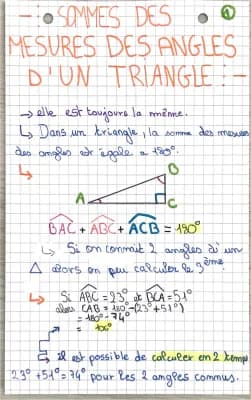 1
SOMMES DES
MESURES DES ANGLES
D'UN TRIANGLE :
→ elle est toujours la même.
↳ Dans un triangle, la somme des mesures
des angles est égale a 180°.
B
A
C
BAC + ABC + ACB = 180°
↳ Si on connait 2 angles d'un
△ alors on peu calculer le 3ème
↳ Si ABC = 23° et BCA = 51°
alors CAB = 180° - (23° + 51°)
= 180° - 74°
= 106°
il est possible de calculer en 2 temps
23° + 51° = 74° pour les 2 angles connus.